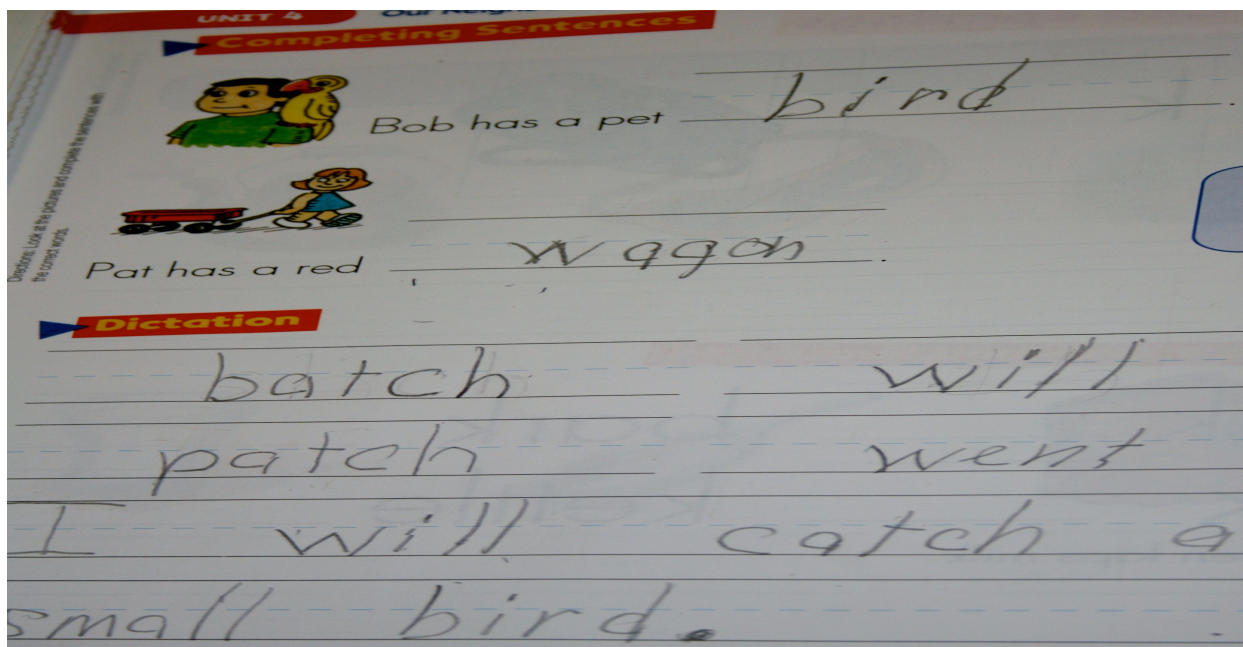 UNIT 4 Our Neigh
Completing Sentences
Directions: Look at the pictures and complete the sentences with
the correct words.
Bob has a pet bird .
Pat has a red wagon .
Dictation
batch will
patch went
I will catch a
small bird.